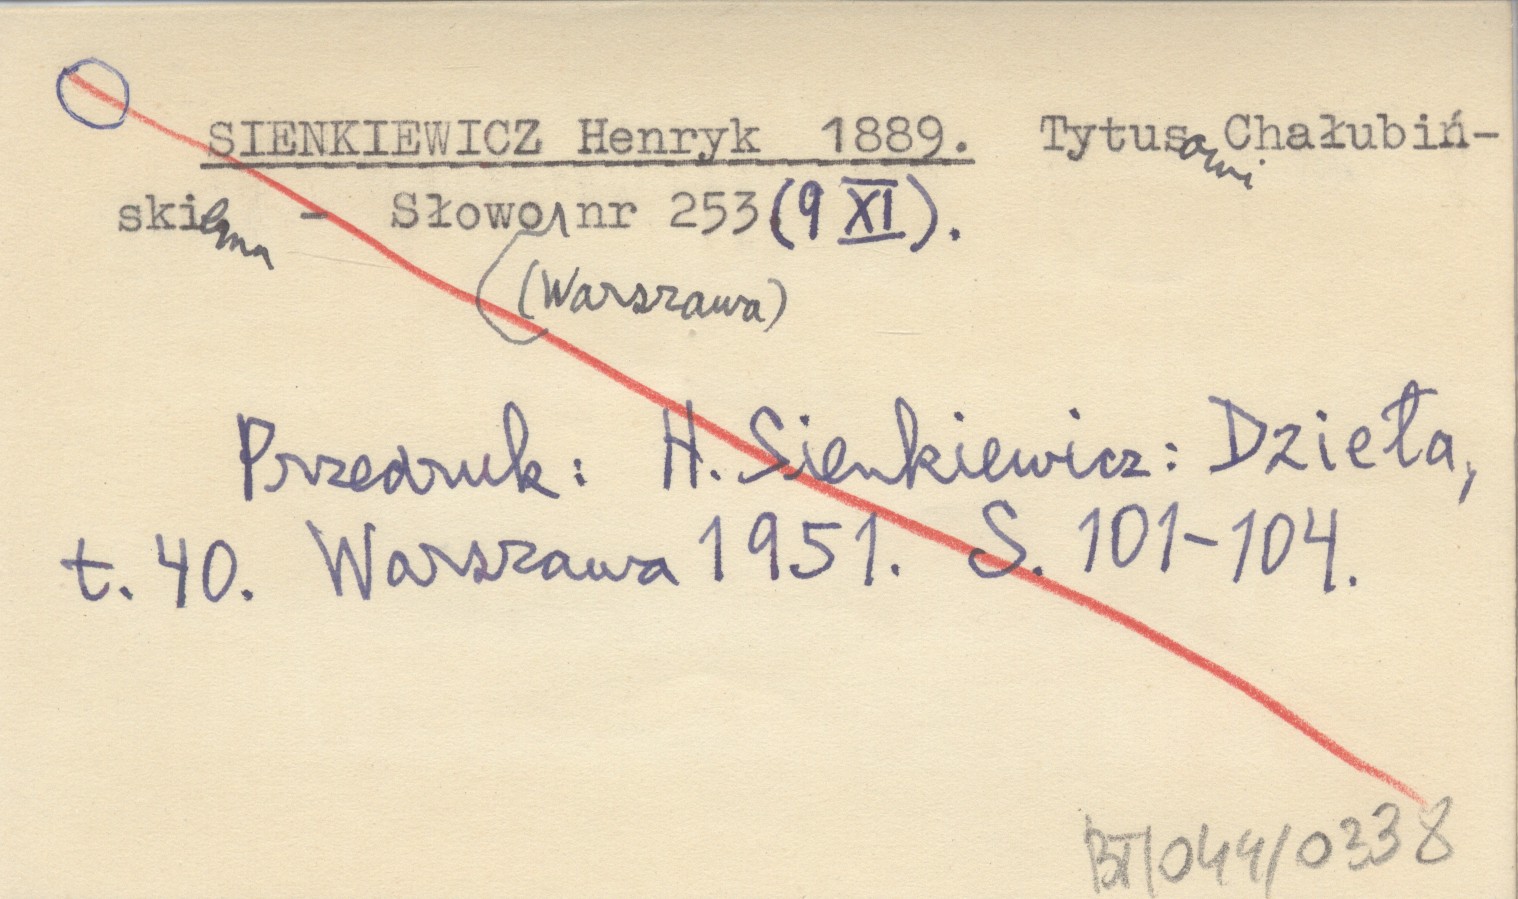 SIENKIEWICZ Henryk 1889. Tytusowi Chałubiń-
skiemu - Słowo nr 253 (9 XI).
(Warszawa)
Przedruk: H. Sienkiewicz: Dzieła,
t. 40. Warszawa 1951. S. 101-104.
BT/044/0338